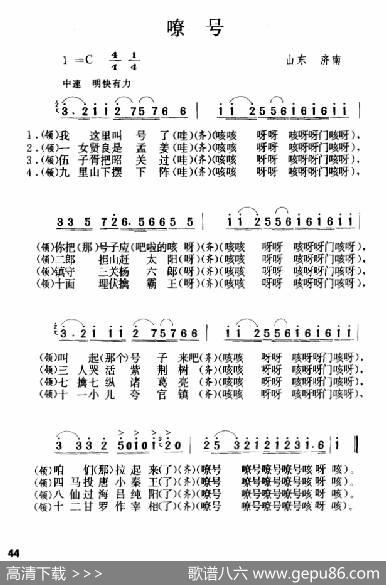 嘹号
1=C 4/4 1/4
山东 济南
中速 明快有力
3. 2 1 1 2 7 5 7 6 6 | 1 1 2 5 5 6 5 5 5 1 |
1.(领)我 这里叫 号 了(哇)(齐)(咳咳 呀呀 咳呀呀门咳呀),
2.(领)一 女贤良是 孟 姜(哇)(齐)(咳咳 呀呀 咳呀呀门咳呀),
3.(领)伍 子胥把昭 关 过(哇)(齐)(咳咳 呀呀 咳呀呀门咳呀),
4.(领)九 里山下摆 下 阵(哇)(齐)(咳咳 呀呀 咳呀呀门咳呀),
3 3 5 7 2 6. 5 6 6 5 5 | 1 1 2 5 5 6 5 5 5 1 |
(领)你把(那)号子应(吧啦的咳 呀)(齐)(咳咳 呀呀 咳呀呀门咳呀),
(领)二郎 担山赶 太 阳(呀)(齐)(咳咳 呀呀 咳呀呀门咳呀),
(领)镇守 三关杨 六 郎(呀)(齐)(咳咳 呀呀 咳呀呀门咳呀),
(领)十面 埋伏擒 霸 王(呀)(齐)(咳咳 呀呀 咳呀呀门咳呀),
3. 2 1 1 2 7 5 7 6 6 | 1 1 2 5 5 6 5 5 5 1 |
(领)叫 起(那个)号 子 来吧(齐)(咳咳 呀呀 咳呀呀门咳呀),
(领)三 人哭活 紫 荆 树(齐)(咳咳 呀呀 咳呀呀门咳呀),
(领)七 擒七纵 诸 葛 亮(齐)(咳咳 呀呀 咳呀呀门咳呀),
(领)十 一小儿 夸 官 镇(齐)(咳咳 呀呀 咳呀呀门咳呀),
(领)咱 们(那)拉起 来(了)(齐)(嘹号 嘹号嘹号嘹号咳 呀 咳)。
(领)四 马投唐 小 秦 王(了)(齐)(嘹号 嘹号嘹号嘹号咳 呀 咳)。
(领)八 仙过海 吕 纯 阳(了)(齐)(嘹号 嘹号嘹号嘹号咳 呀 咳)。
(领)十 二甘罗 作 宰 相(了)(齐)(嘹号 嘹号嘹号嘹号咳 呀 咳)。
44
高清下载 >>>
歌谱八六 www.gepu86.com